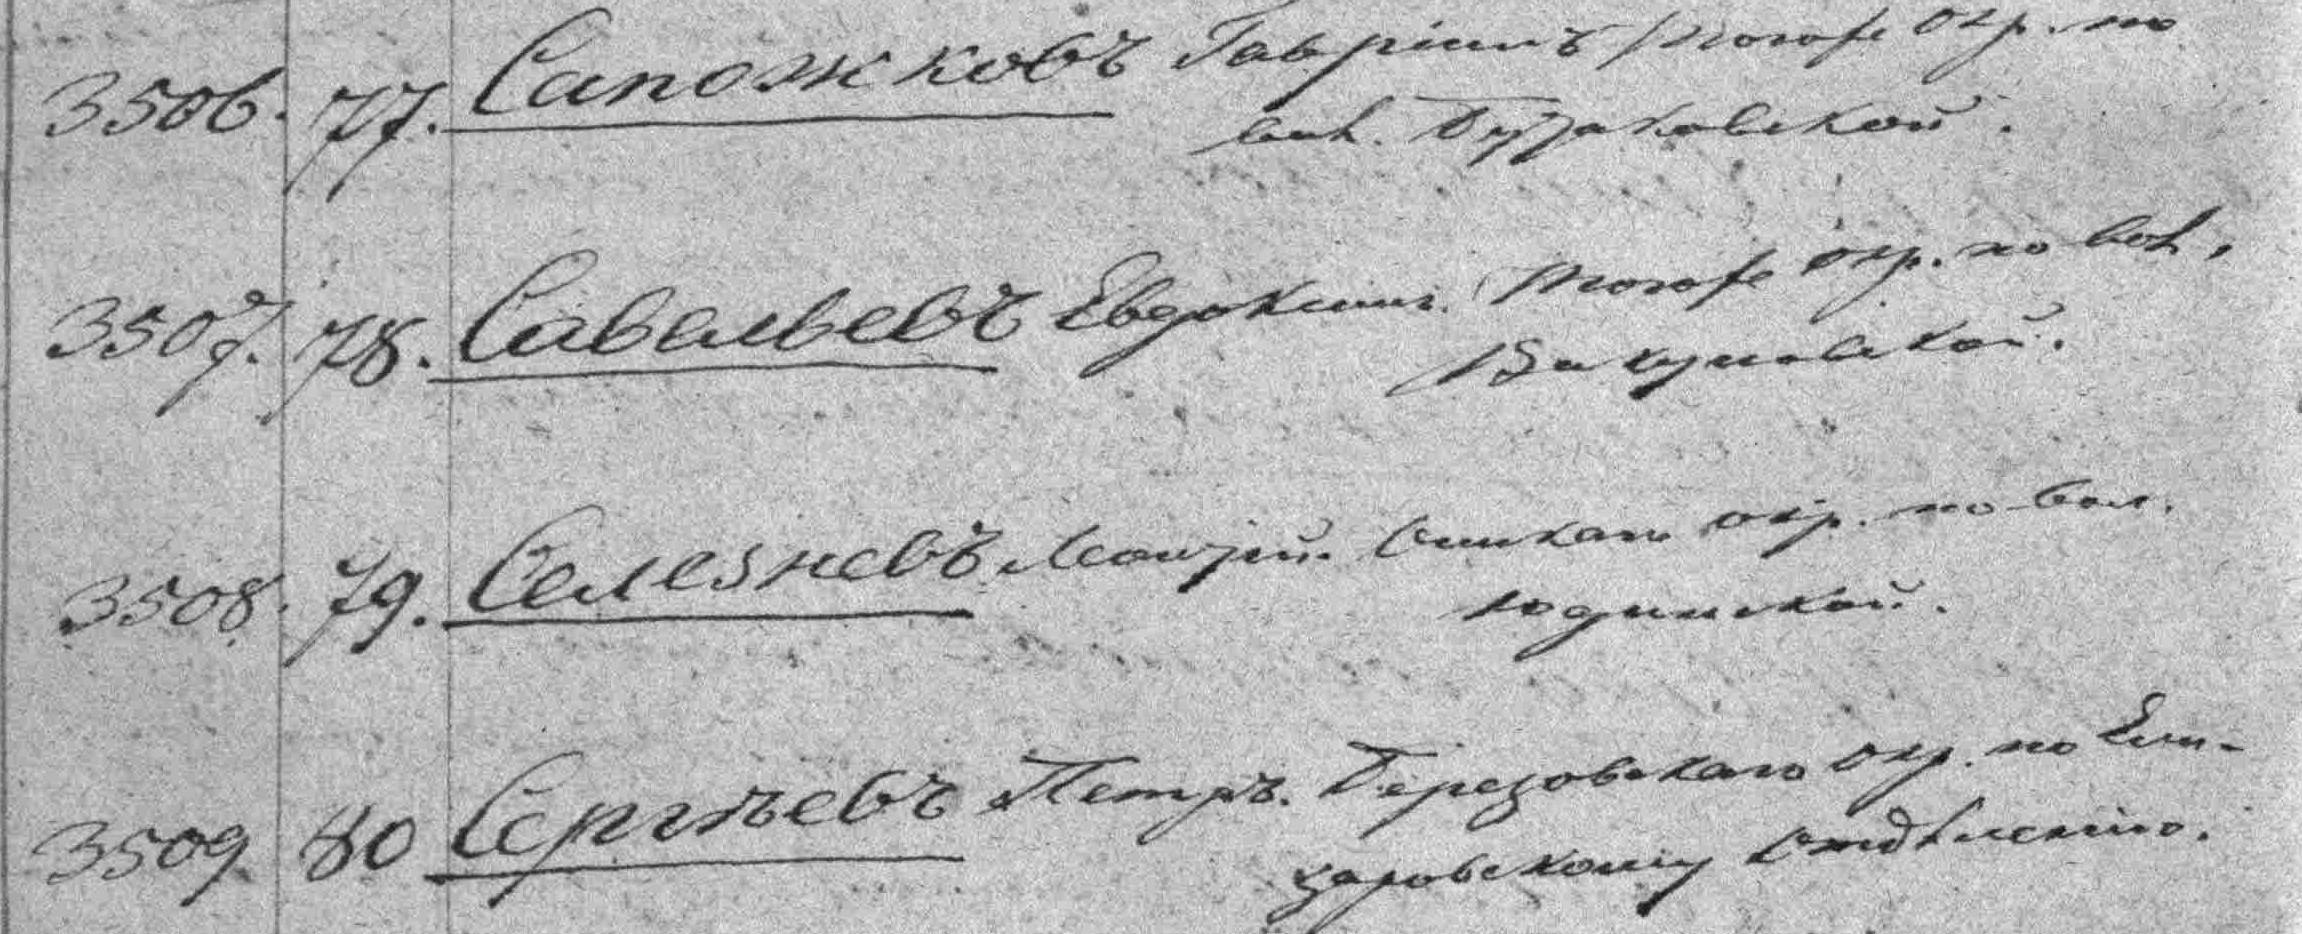 3506. 77. Сапожковъ Гавріилъ того же окр. по
вол. Бузаковской.
3507. 78. Савельевъ Евдокимъ. того же окр. по вол.
Вакуловской.
3508. 79. Селезневъ окр. по вол.
Юдинской.
3509 80 Сергѣевъ Петръ. Березовскаго окр. по Ели-
заровскому отдѣленію.